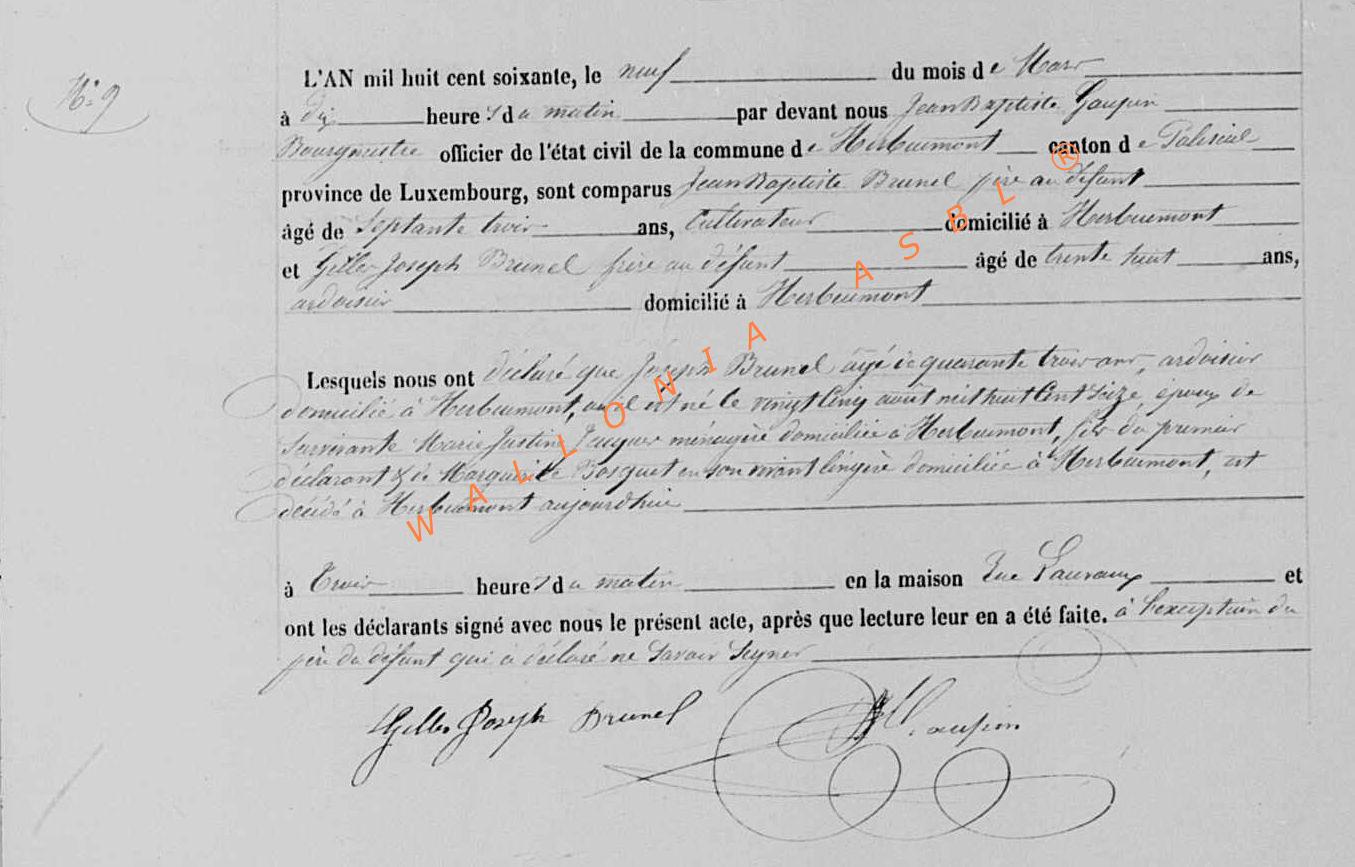 N° 9
L'AN mil huit cent soixante, le neuf du mois de Mars
à dix heures du matin par devant nous Jean Baptiste Gaupin
Bourgmestre officier de l'état civil de la commune de Herbeumont canton de Paliseul
province de Luxembourg, sont comparus Jean Baptiste Brunel père au défunt
âgé de Septante trois ans, Cultivateur domicilié à Herbeumont
et Gilles Joseph Brunel frère au défunt âgé de trente huit ans,
ardoisier domicilié à Herbeumont
Lesquels nous ont déclaré que Joseph Brunel âgé de quarante trois ans, ardoisier
domicilié à Herbeumont, où il est né le vingt cinq août mil huit cent seize époux de
survivante Marie Justine Jacques ménagère domiciliée à Herbeumont, fils du premier
déclarant & de Marguerite Bosquet en son vivant lingère domiciliée à Herbeumont, est
décédé à Herbeumont aujourdhui
à trois heures du matin en la maison Rue Lauvaux et
ont les déclarants signé avec nous le présent acte, après que lecture leur en a été faite. à l'exception du
père du défunt qui a déclaré ne savoir signer
Gilles Joseph Brunel
Gaupin
WALLONIA ASBL ®